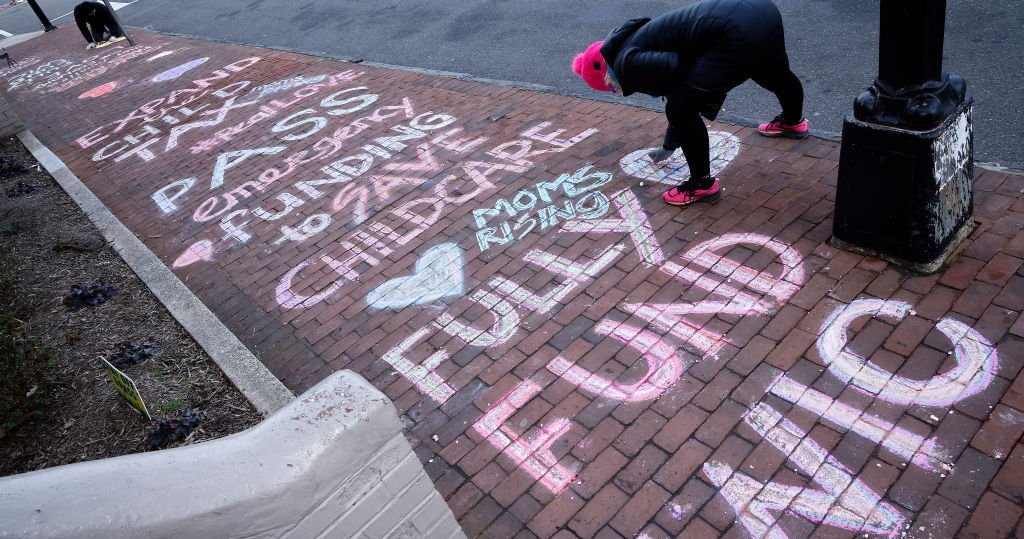 EXPAND
CHILD
TAX
#careALOVE
PASS
emergency
FUNDING
to SAVE
CHILDCARE
MOMS
RISING
FULLY
FUND
WIC